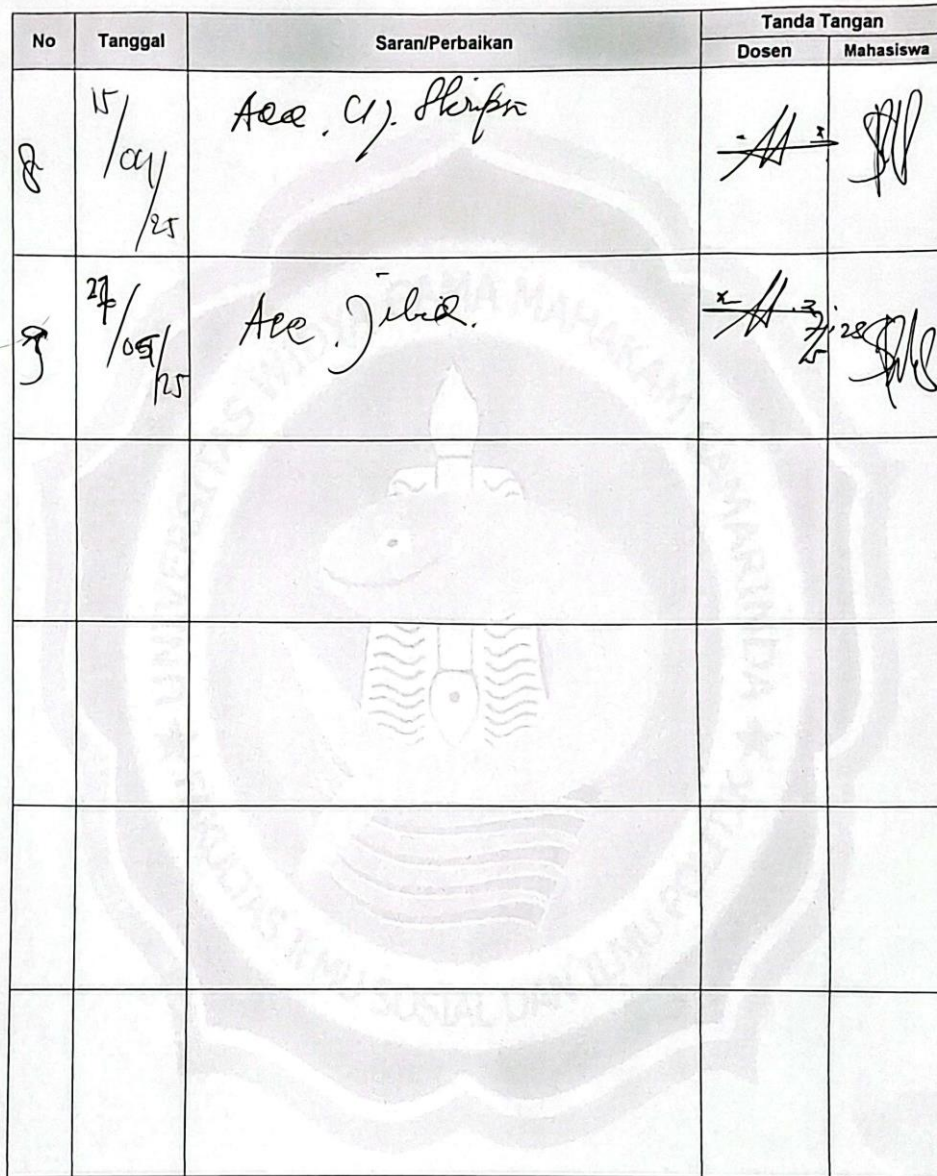 No Tanggal Saran/Perbaikan Tanda Tangan
Dosen Mahasiswa
8 15/04/25 Acc Uj. Skripsi
9 27/05/25 Acc Jilid.
UNIVERSITAS WIDYA GAMA MAHAKAM SAMARINDA
FAKULTAS ILMU SOSIAL DAN ILMU POLITIK